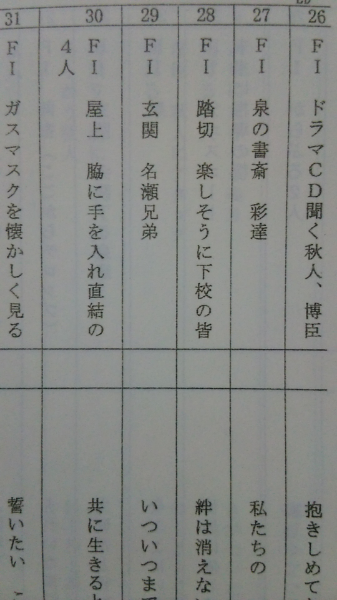 26
FI ドラマCD聞く秋人、博臣
抱きしめて
27
FI 泉の書斎 彩達
私たちの
28
FI 踏切 楽しそうに下校の皆
絆は消えな
29
FI 玄関 名瀬兄弟
いついつまで
30
FI 屋上 脇に手を入れ直結の
4人
共に生きる
31
FI ガスマスクを懐かしく見る
誓いたい